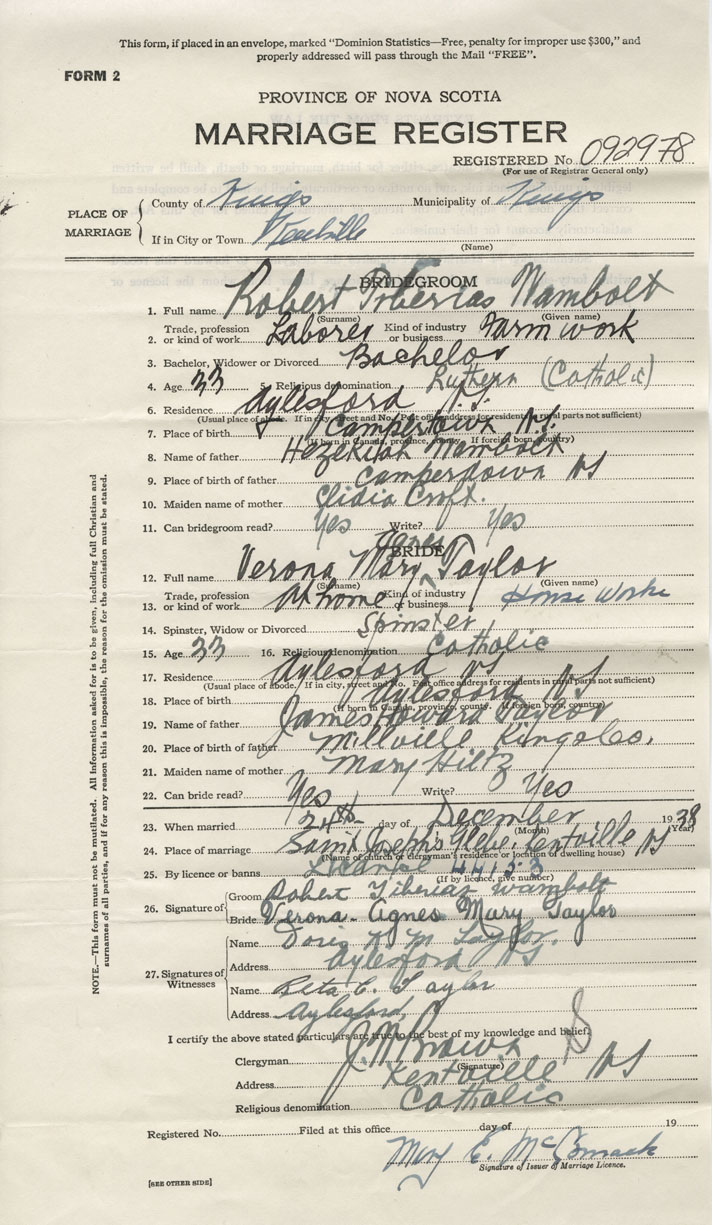 This form, if placed in an envelope, marked "Dominion Statistics—Free, penalty for improper use $300," and
properly addressed will pass through the Mail "FREE".
FORM 2
PROVINCE OF NOVA SCOTIA
MARRIAGE REGISTER
REGISTERED No. 092978
(For use of Registrar General only)
PLACE OF MARRIAGE
County of Kings Municipality of Kings
If in City or Town Kentville
(Name)
BRIDEGROOM
1. Full name Robert Tiberias Wambolt
(Surname) (Given name)
2. Trade, profession or kind of work Laborer Kind of industry or business Farm work
3. Bachelor, Widower or Divorced Bachelor
4. Age 33 5. Religious denomination Luthern (Catholic)
6. Residence Aylesford N.S.
(Usual place of abode. If in city, street and No. Post office address for residents in rural parts not sufficient)
7. Place of birth Camperdown N.S.
(If born in Canada, province, county. If foreign born, country)
8. Name of father Hezekiah Wambolt
9. Place of birth of father Camperdown NS
10. Maiden name of mother Croft.
11. Can bridegroom read? Yes Write? Yes
BRIDE
Agnes
12. Full name Verona Mary ^ Taylor
(Surname) (Given name)
13. Trade, profession or kind of work At home Kind of industry or business House Worke
14. Spinster, Widow or Divorced Spinster
15. Age 33 16. Religious denomination Catholic
17. Residence Aylesford NS
(Usual place of abode. If in city, street and No. Post office address for residents in rural parts not sufficient)
18. Place of birth Aylesford NS
(If born in Canada, province, county. If foreign born, country)
19. Name of father James Howard Taylor
20. Place of birth of father Millville Kings Co.
21. Maiden name of mother Mary Hiltz
22. Can bride read? Yes Write? Yes
23. When married 24th day of December 1938
(Month) (Year)
24. Place of marriage Saint Joseph's Glebe, Kentville NS
(Name of church or clergyman's residence or location of dwelling house)
25. By licence or banns License 44153
(If by licence, give number)
26. Signature of
Groom Robert Tiberias Wambolt
Bride Verona-Agnes Mary Taylor
27. Signatures of Witnesses
Name Doris M Taylor.
Address Aylesford NS
Name Reta C. Taylor
Address Aylesford,
I certify the above stated particulars are true to the best of my knowledge and belief.
Clergyman J. M Brown
(Signature)
Address Kentville NS
Religious denomination Catholic
Registered No. Filed at this office day of 19
Mary E. McCormack
Signature of Issuer of Marriage Licence.
[SEE OTHER SIDE]
NOTE.—This form must not be mutilated. All information asked for is to be given, including full Christian and
surnames of all parties, and if for any reason this is impossible, the reason for the omission must be stated.